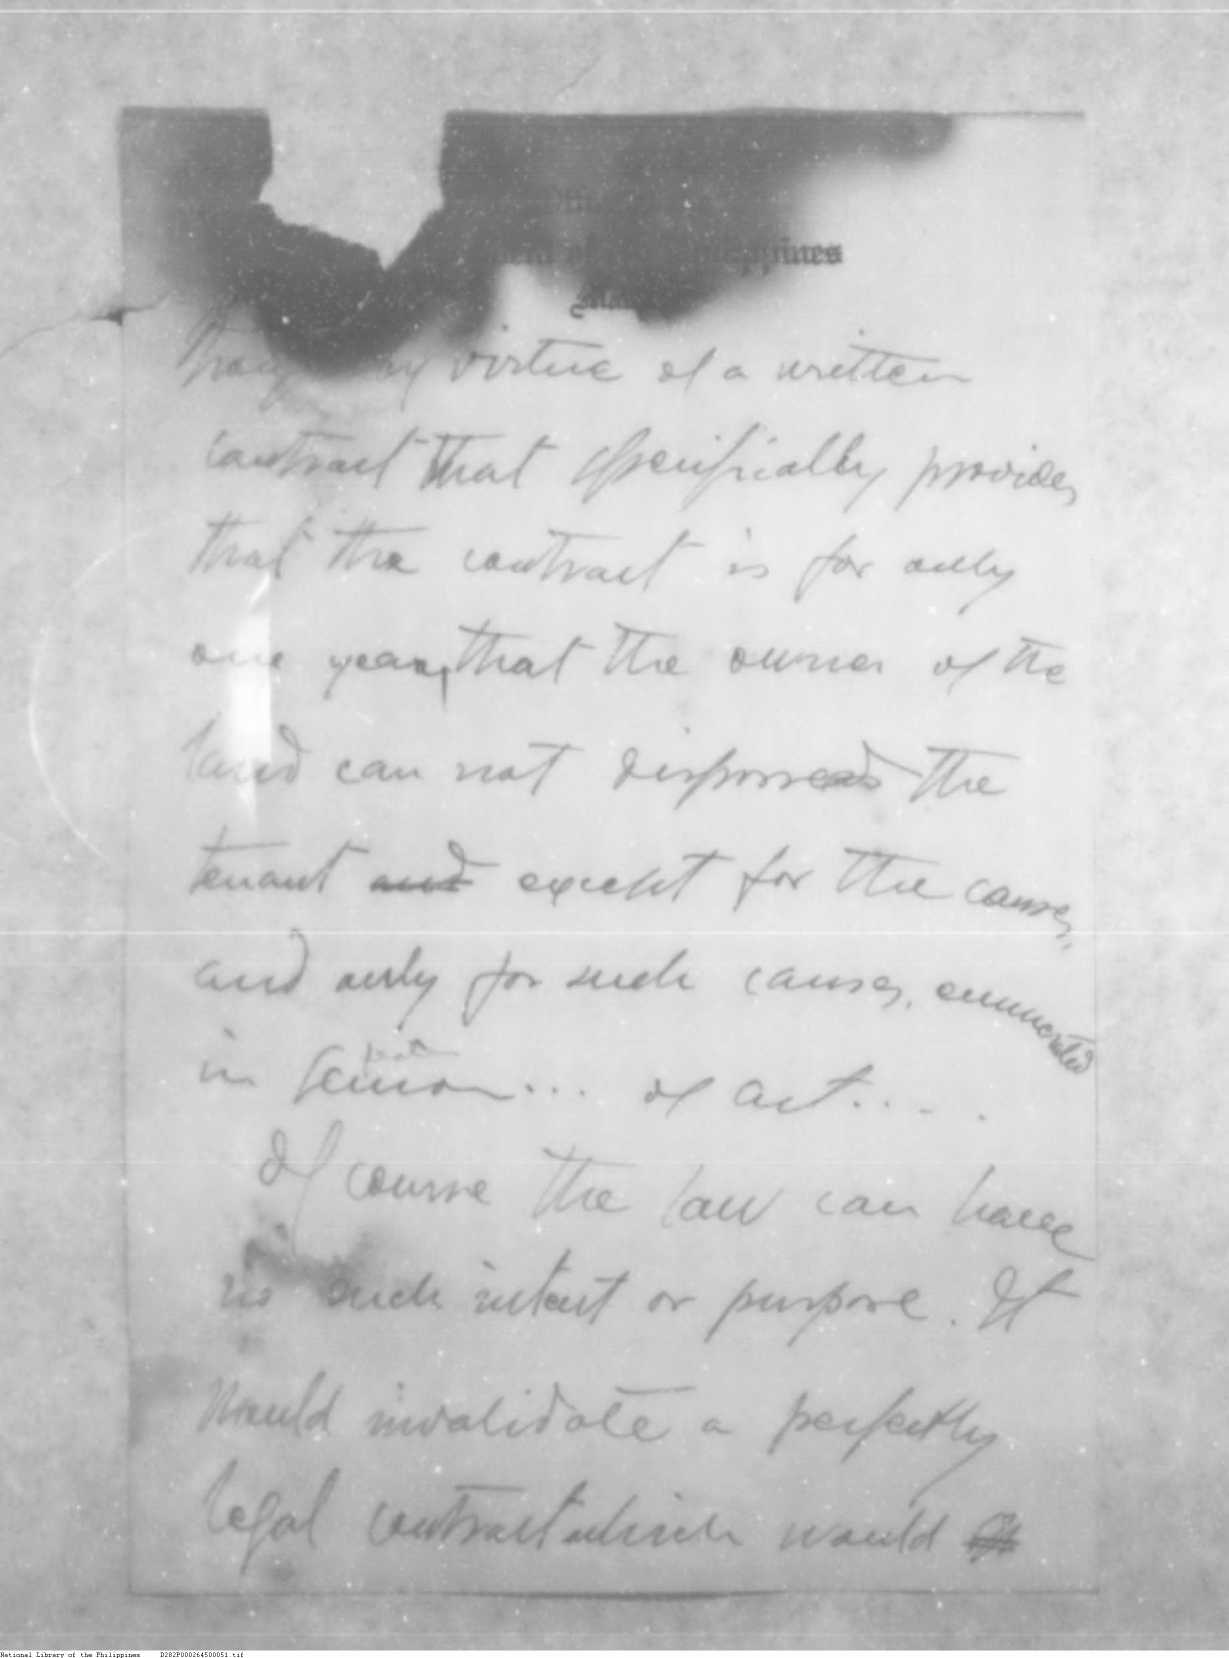 by virtue of a written
contract that specifically provides
that the contract is for only
one year, that the owner of the
land can not dispossess the
tenant and except for the causes,
and only for such causes, enumerated
in Section... of act....
Of course the law can have
no such intent or purpose. It
would invalidate a perfectly
legal contract which would
National Library of the Philippines D282P000264500051.tif